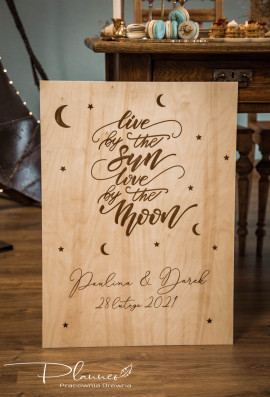 live
by the
Sun
love
by the
Moon
Paulina & Darek
28 lutego 2021
Planneo
Pracownia Drewna